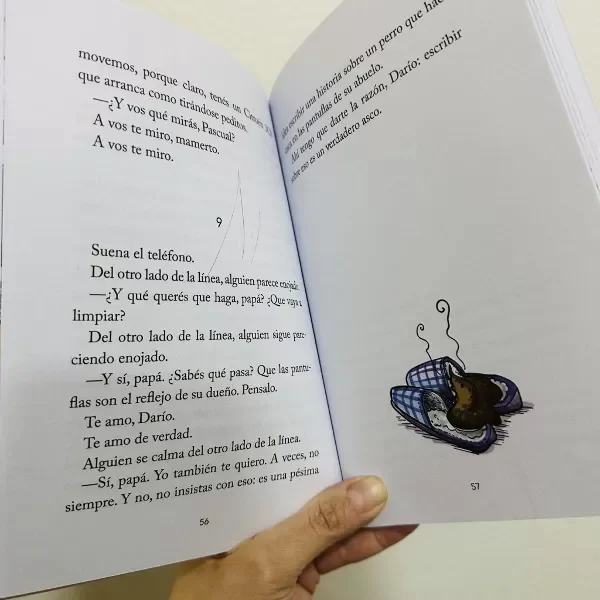 movemos, porque claro, tenés un
que arranca como tirándose peditos.
—¿Y vos qué mirás, Pascual?
A vos te miro, mamerto.
A vos te miro.
9
Suena el teléfono.
Del otro lado de la línea, alguien parece enojado.
—¿Y qué querés que haga, papá? ¿Que vaya a
limpiar?
Del otro lado de la línea, alguien sigue pare-
ciendo enojado.
—Y sí, papá. ¿Sabés qué pasa? Que las pantu-
flas son el reflejo de su dueño. Pensalo.
Te amo, Darío.
Te amo de verdad.
Alguien se calma del otro lado de la línea.
—Sí, papá. Yo también te quiero. A veces, no
siempre. Y no, no insistas con eso: es una pésima
56
idea escribir una historia sobre un perro que hace
caca en las pantuflas de su abuelo.
Ahí tengo que darte la razón, Darío: escribir
sobre eso es un verdadero asco.
57